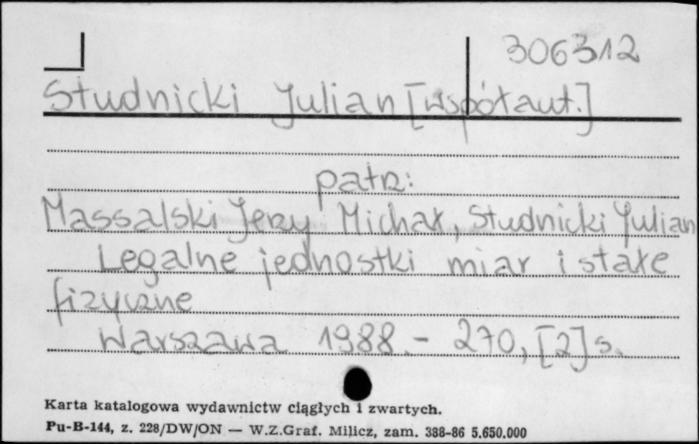 306312
Studnicki Julian [współaut.]
patrz:
Massalski Jerzy Michał, Studnicki Julian
Legalne jednostki miar i stałe
fizyczne
Warszawa 1988. - 270, [2] s.
Karta katalogowa wydawnictw ciągłych i zwartych.
Pu-B-144, z. 228/DW/ON — W.Z.Graf. Milicz, zam. 388-86 5.650.000